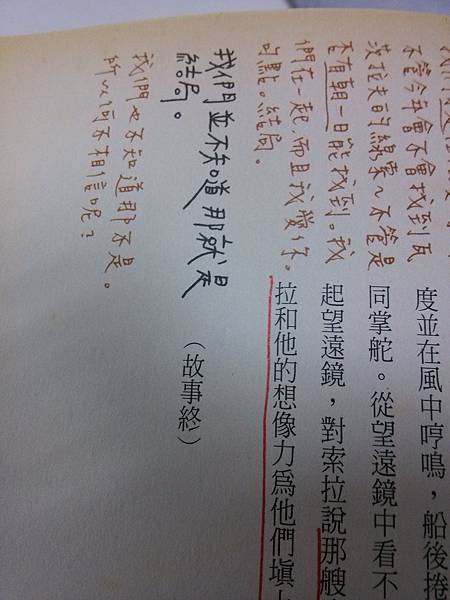 不管今年會不會找到瓦
茨拉夫的線索～不管是
否有朝一日能找到。我
們在一起,而且我愛你。
句點。結局。
我們並不知道那就是
結局。
我們也不知道那不是。
所以何不相信呢？
度並在風中哼鳴，船後捲
同掌舵。從望遠鏡中看不
起望遠鏡，對索拉說那艘
拉和他的想像力爲他們填
（故事終）